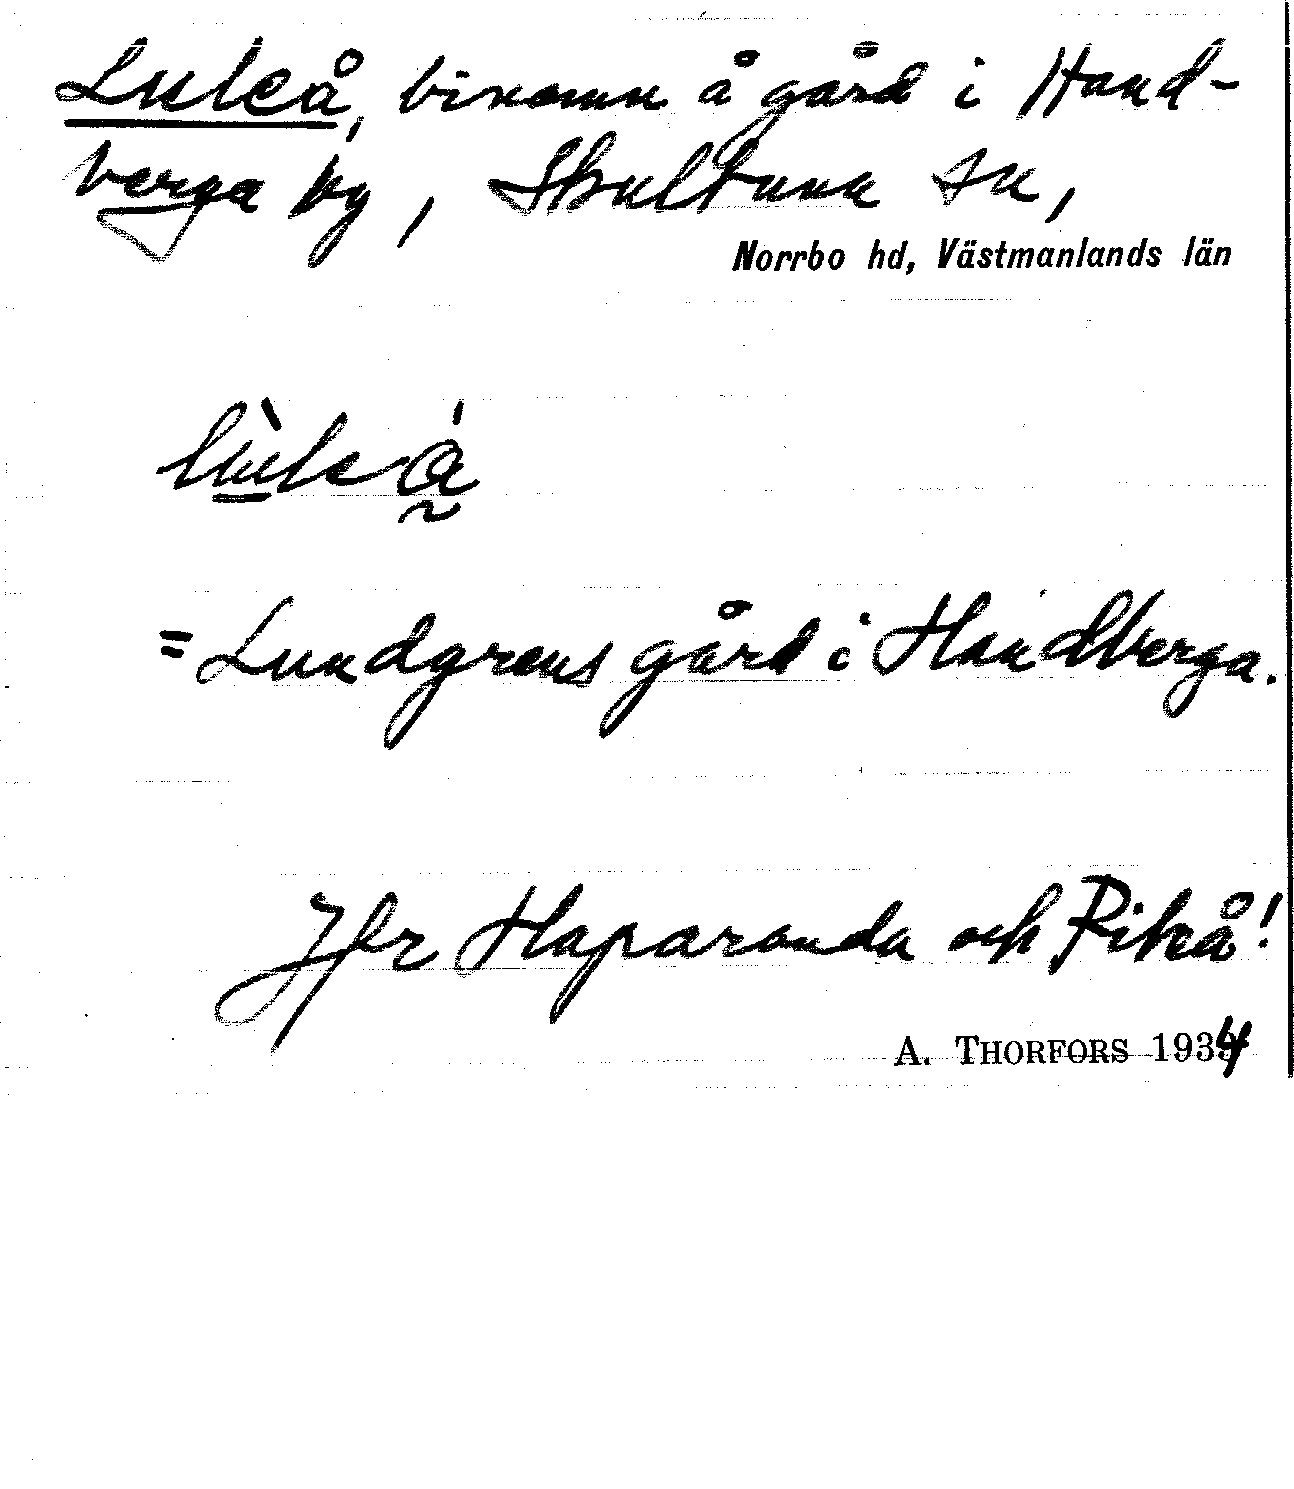 Luleå, binamn å gård i Hand-
berga by, Skultuna sn,
Norrbo hd, Västmanlands län
= Lundgrens gård i Handberga.
Jfr Haparanda och Piteå!
A. THORFORS 1934